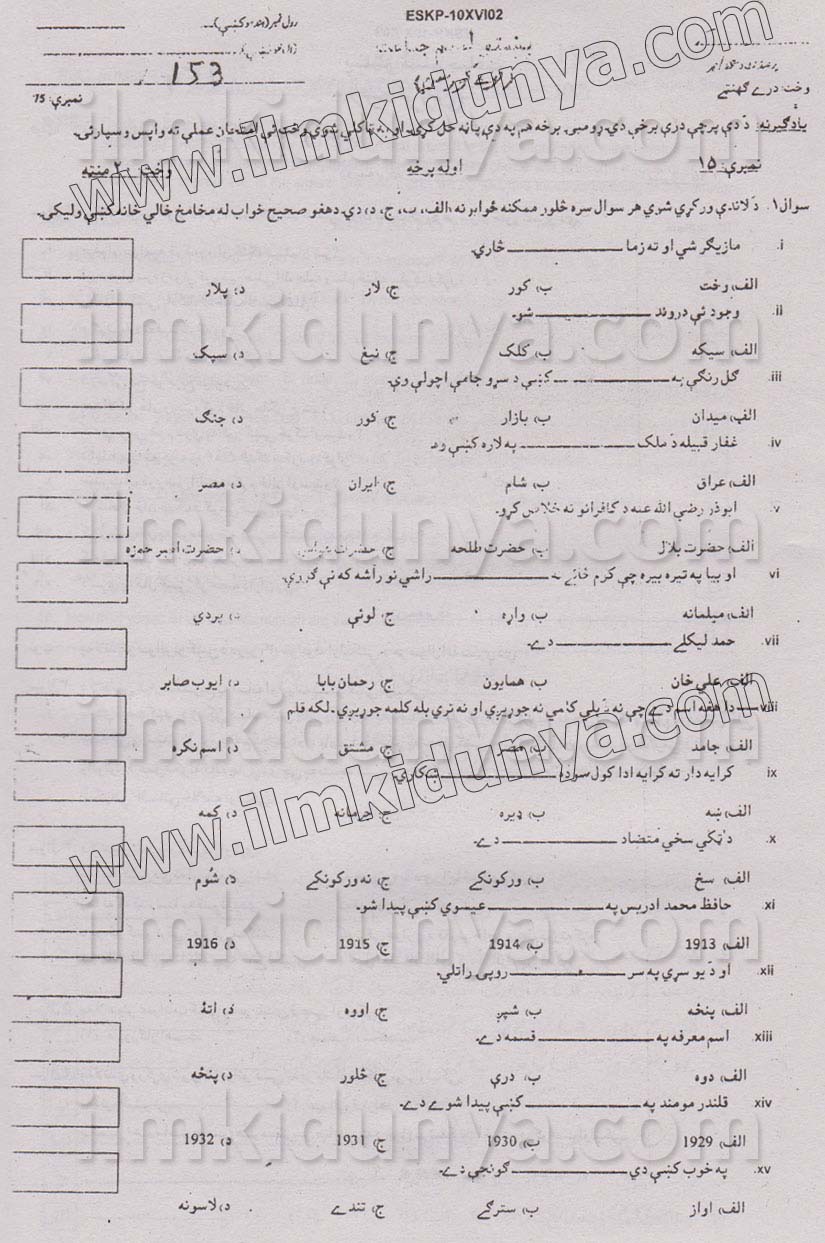 ESKP-10XVI02
رول نمبر (هندسو کښې)
153
وخت درے گهنټے
نمبرې: 75
یادگیرنه: دَ دې پرچې درې برخې دي. ړومبۍ برخه هم په دې پاڼه حل کړئ. او
وخت کښې امتحان عملې ته واپس وسپارئ.
نمبرې ۱۵ اوله برخه وخت ۲۰ منټه
سوال۱. دَ لاندې ورکړې شوي هر سوال سره څلور ممکنه ځوابونه الف، ب، ج، د، دي. دهغو صحیح ځواب له مخامخ خالي خانه کښې ولیکی.
i. مازیگر شي او ته زما ________ څارې.
الف، وخت ب، کور ج، لار د، پلار
ii. وجود ئې دروند ________ شو.
الف، سیکه ب، کلک ج، نیغ د، سپک
iii. گل رنگې په ________ کښې د سرو جامې اچولې وې.
الف، میدان ب، بازار ج، کور د، جنگ
iv. غفار قبیله دَ ملک ________ په لاره کښې وه
الف، عراق ب، شام ج، ایران د، مصر
v. ابوذر رضي الله عنه د کافرانو نه خلاص کړو.
الف، حضرت بلال ب، حضرت طلحه ج، حضرت عباس د، حضرت امیر حمزه
vi. او بیا په تیره بیره چې کرم ځائے نه ________ راشي نو راشه که نې گورې.
الف، میلمانه ب، واړه ج، لوئې د، پردي
vii. حمد لیکلے ________ دے.
الف، علي خان ب، همایون ج، رحمان بابا د، ایوب صابر
viii. ____ دا هغه اسم دے چې نه د بلې کلمې نه جوړیږي او نه ترې بله کلمه جوړیږي. لکه قلم
الف، جامد ب، مصدر ج، مشتق د، اسم نکره
ix. کرایه دار ته کرایه ادا کول سره د ________ ښکاري.
الف، ښه ب، ډیره ج، جرمانه د، کمه
x. دَ ټکي سخي متضاد ________ دے.
الف، سخ ب، ورکونکے ج، نه ورکونکے د، شُوم
xi. حافظ محمد ادریس په ________ عیسوي کښې پیدا شو.
الف، 1913 ب، 1914 ج، 1915 د، 1916
xii. او دَ یو سړي په سر ________ روپۍ راتلې.
الف، پنځه ب، شپږ ج، اووه د، اتهٔ
xiii. اسم معرفه په ________ قسمه دے.
الف، دوه ب، درې ج، څلور د، پنځه
xiv. قلندر مومند په ________ کښې پیدا شوے دے.
الف، 1929 ب، 1930 ج، 1931 د، 1932
xv. په خوب کښې دي ________ گونجې دے.
الف، اواز ب، سترگے ج، تندے د، لاسونه
www.ilmkidunya.com
www.ilmkidunya.com
ilmkidunya.com
ilmkidunya.com
ilmkidunya.com
ilmkidunya.com
ilmkidunya.com
ilmkidunya.com